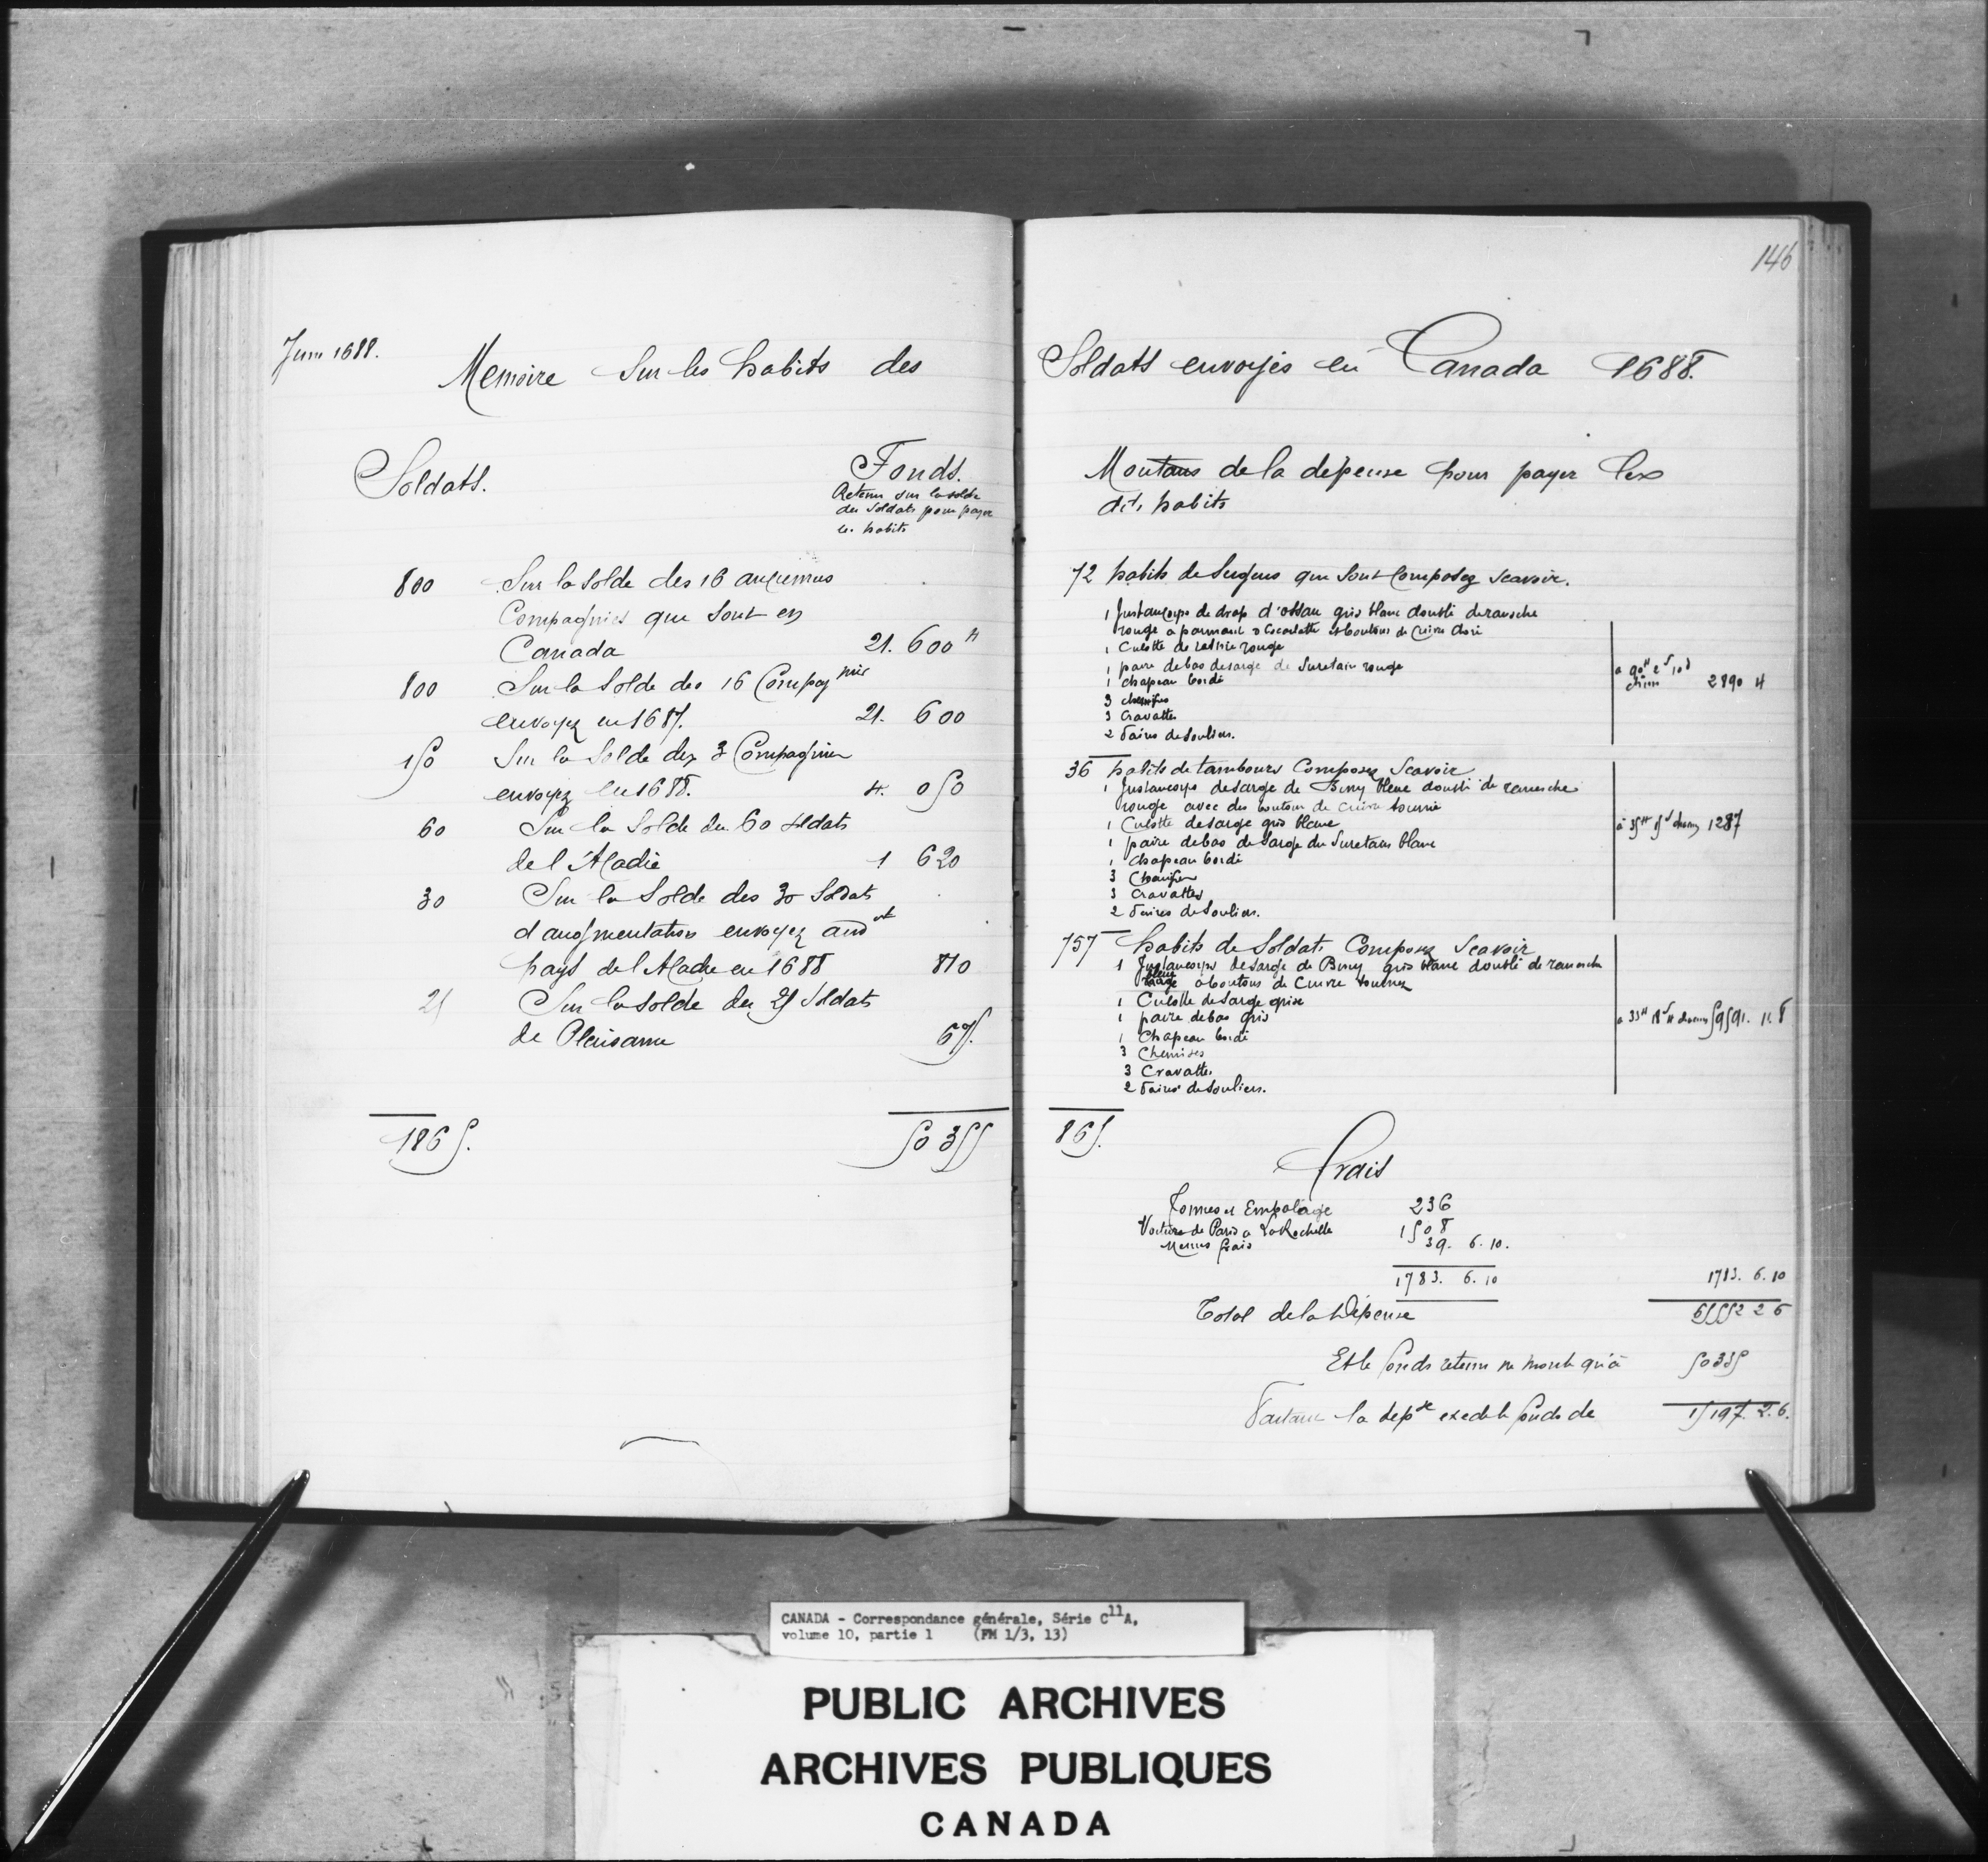 Juin 1688.
Memoire Sur les habits des
Soldats.
Fonds.
Retenu sur la solde
des Soldats pour payer
les habits
800 Sur la Solde des 16 anciennes
Compagnies que sont en
Canada 21. 600 ᴴ
800 Sur la Solde des 16 Compagnies
envoyez en 1687. 21. 600
150 Sur la Solde des 3 Compagnies
envoyez en 1688. 4. 050
60 Sur la Solde des 60 soldats
de l'Acadie 1 620
30 Sur la Solde des 30 Soldats
d'augmentation envoyez aud.
pays de l'Acadie en 1688 810
25 Sur la solde des 25 Soldats
de Plaisance 675.
1865. 50355
146
Soldats envoyés en Canada 1688.
Montans de la depense pour payer les
dits habits
72 habits de Sergens que sont Composez scavoir.
1 Justaucorps de drap d'ossau gris blanc doublé de
rouge a parmant d'Escarlatte et boutons de Cuivre doré
1 Culotte de rouge
1 paire de bas de sarge de rouge
1 chapeau bordé
3 chemises
3 Cravattes
2 Paires de Souliers.
a 40ᴴ 2ˢ 10ᵈ
chacun 2890 ᴴ
36 habits de tambours Composez Scavoir
1 Justaucorps de sarge de Berry bleue doublé de
rouge avec des boutons de cuivre
1 Culotte de sarge gris blanc
1 paire de bas de Sarge blanc
1 Chapeau bordé
3 Chemises
3 Cravattes
2 Paires de Souliers.
à 35ᴴ 15ˢ chacun 1287
757 habits de Soldats Composez Scavoir
1 Justaucorps de sarge de Berry gris blanc doublé de
bleue
rouge a boutons de Cuivre
1 Culotte de Sarge grise
1 paire de bas gris
1 Chapeau bordé
3 Chemises
3 Cravattes
2 Paires de Souliers.
a 33ᴴ chacun 59591. 11. 8
865.
Frais
Tonnes et Empolage 236
Voiture de Paris a LaRochelle 1508
Menus frais 39. 6. 10.
1783. 6. 10 1783. 6. 10
Total de la Dépense 65552 2 6
Et le fonds retenu ne monte qu'à 50355
Partant la depse excede le fonds de 15197. 2. 6.
CANADA - Correspondance générale, Série C11A,
volume 10, partie 1 (FM 1/3, 13)
PUBLIC ARCHIVES
ARCHIVES PUBLIQUES
CANADA